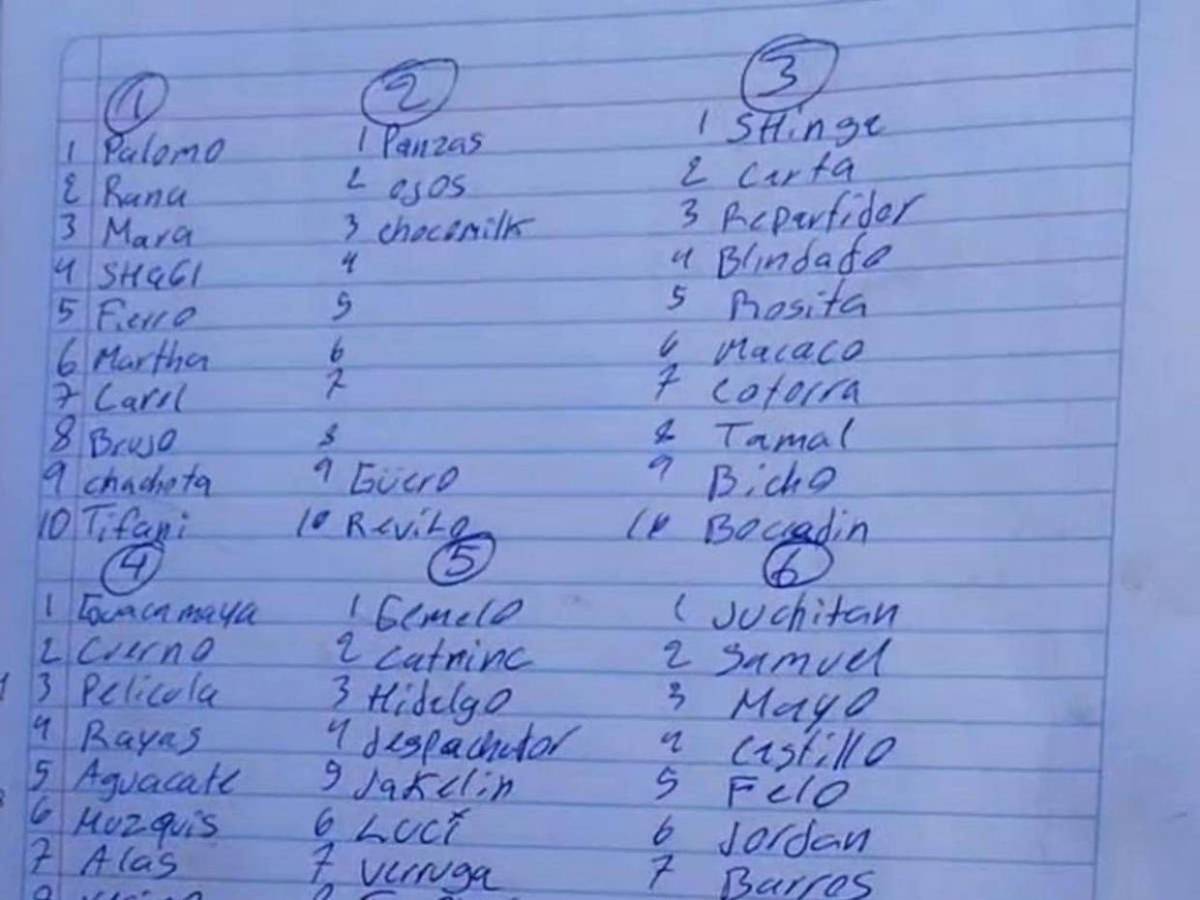 1 2 3
1 Palomo 1 Panzas 1 SHinge
2 Rana 2 OJOS 2 Carta
3 Mara 3 chocomilk 3 Repartidor
4 SHAGI 4 4 Blindado
5 Fierro 5 5 Rosita
6 Martha 6 6 Macaco
7 Carel 7 7 Cotorra
8 Brujo 8 8 Tamal
9 chachota 9 Güero 9 Bicho
10 Tifani 10 Revito 10 Bocadin
4 5 6
1 Guacamaya 1 Gemelo 1 Juchitan
2 Cuerno 2 Catrinc 2 Samuel
3 Pelicula 3 Hidalgo 3 Mayo
4 Rayas 4 despachador 4 Castillo
5 Aguacate 5 Jakelin 5 Felo
6 Muzquis 6 Luci 6 Jordan
7 Alas 7 Verruga 7 Barros
8 8